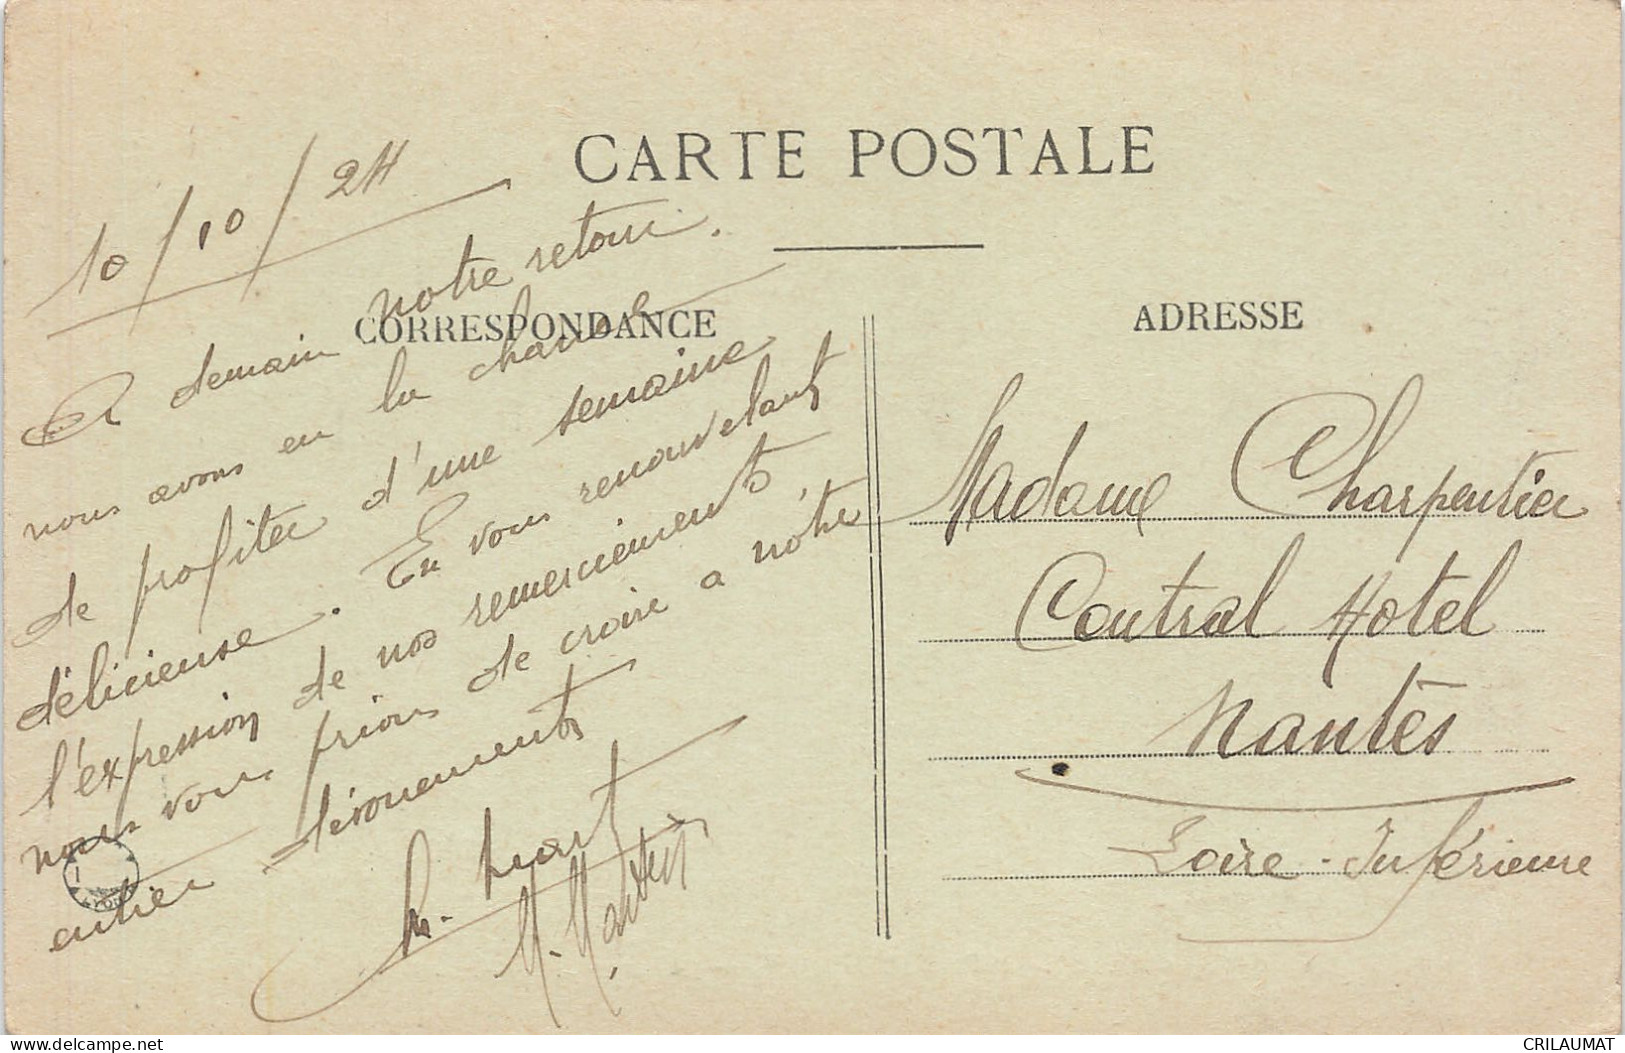 CARTE POSTALE
CORRESPONDANCE
ADRESSE
10/10/24
A demain notre retour.
nous avons eu la chance
de profiter d'une semaine
délicieuse. En vous renouvelant
l'expression de nos remerciements
nous vous prions de croire a nôtre
entier dévouements
M. Martin
Madame Charpentier
Central Hotel
Nantes
Loire-Inférieure
www.delcampe.net
CRILAUMAT